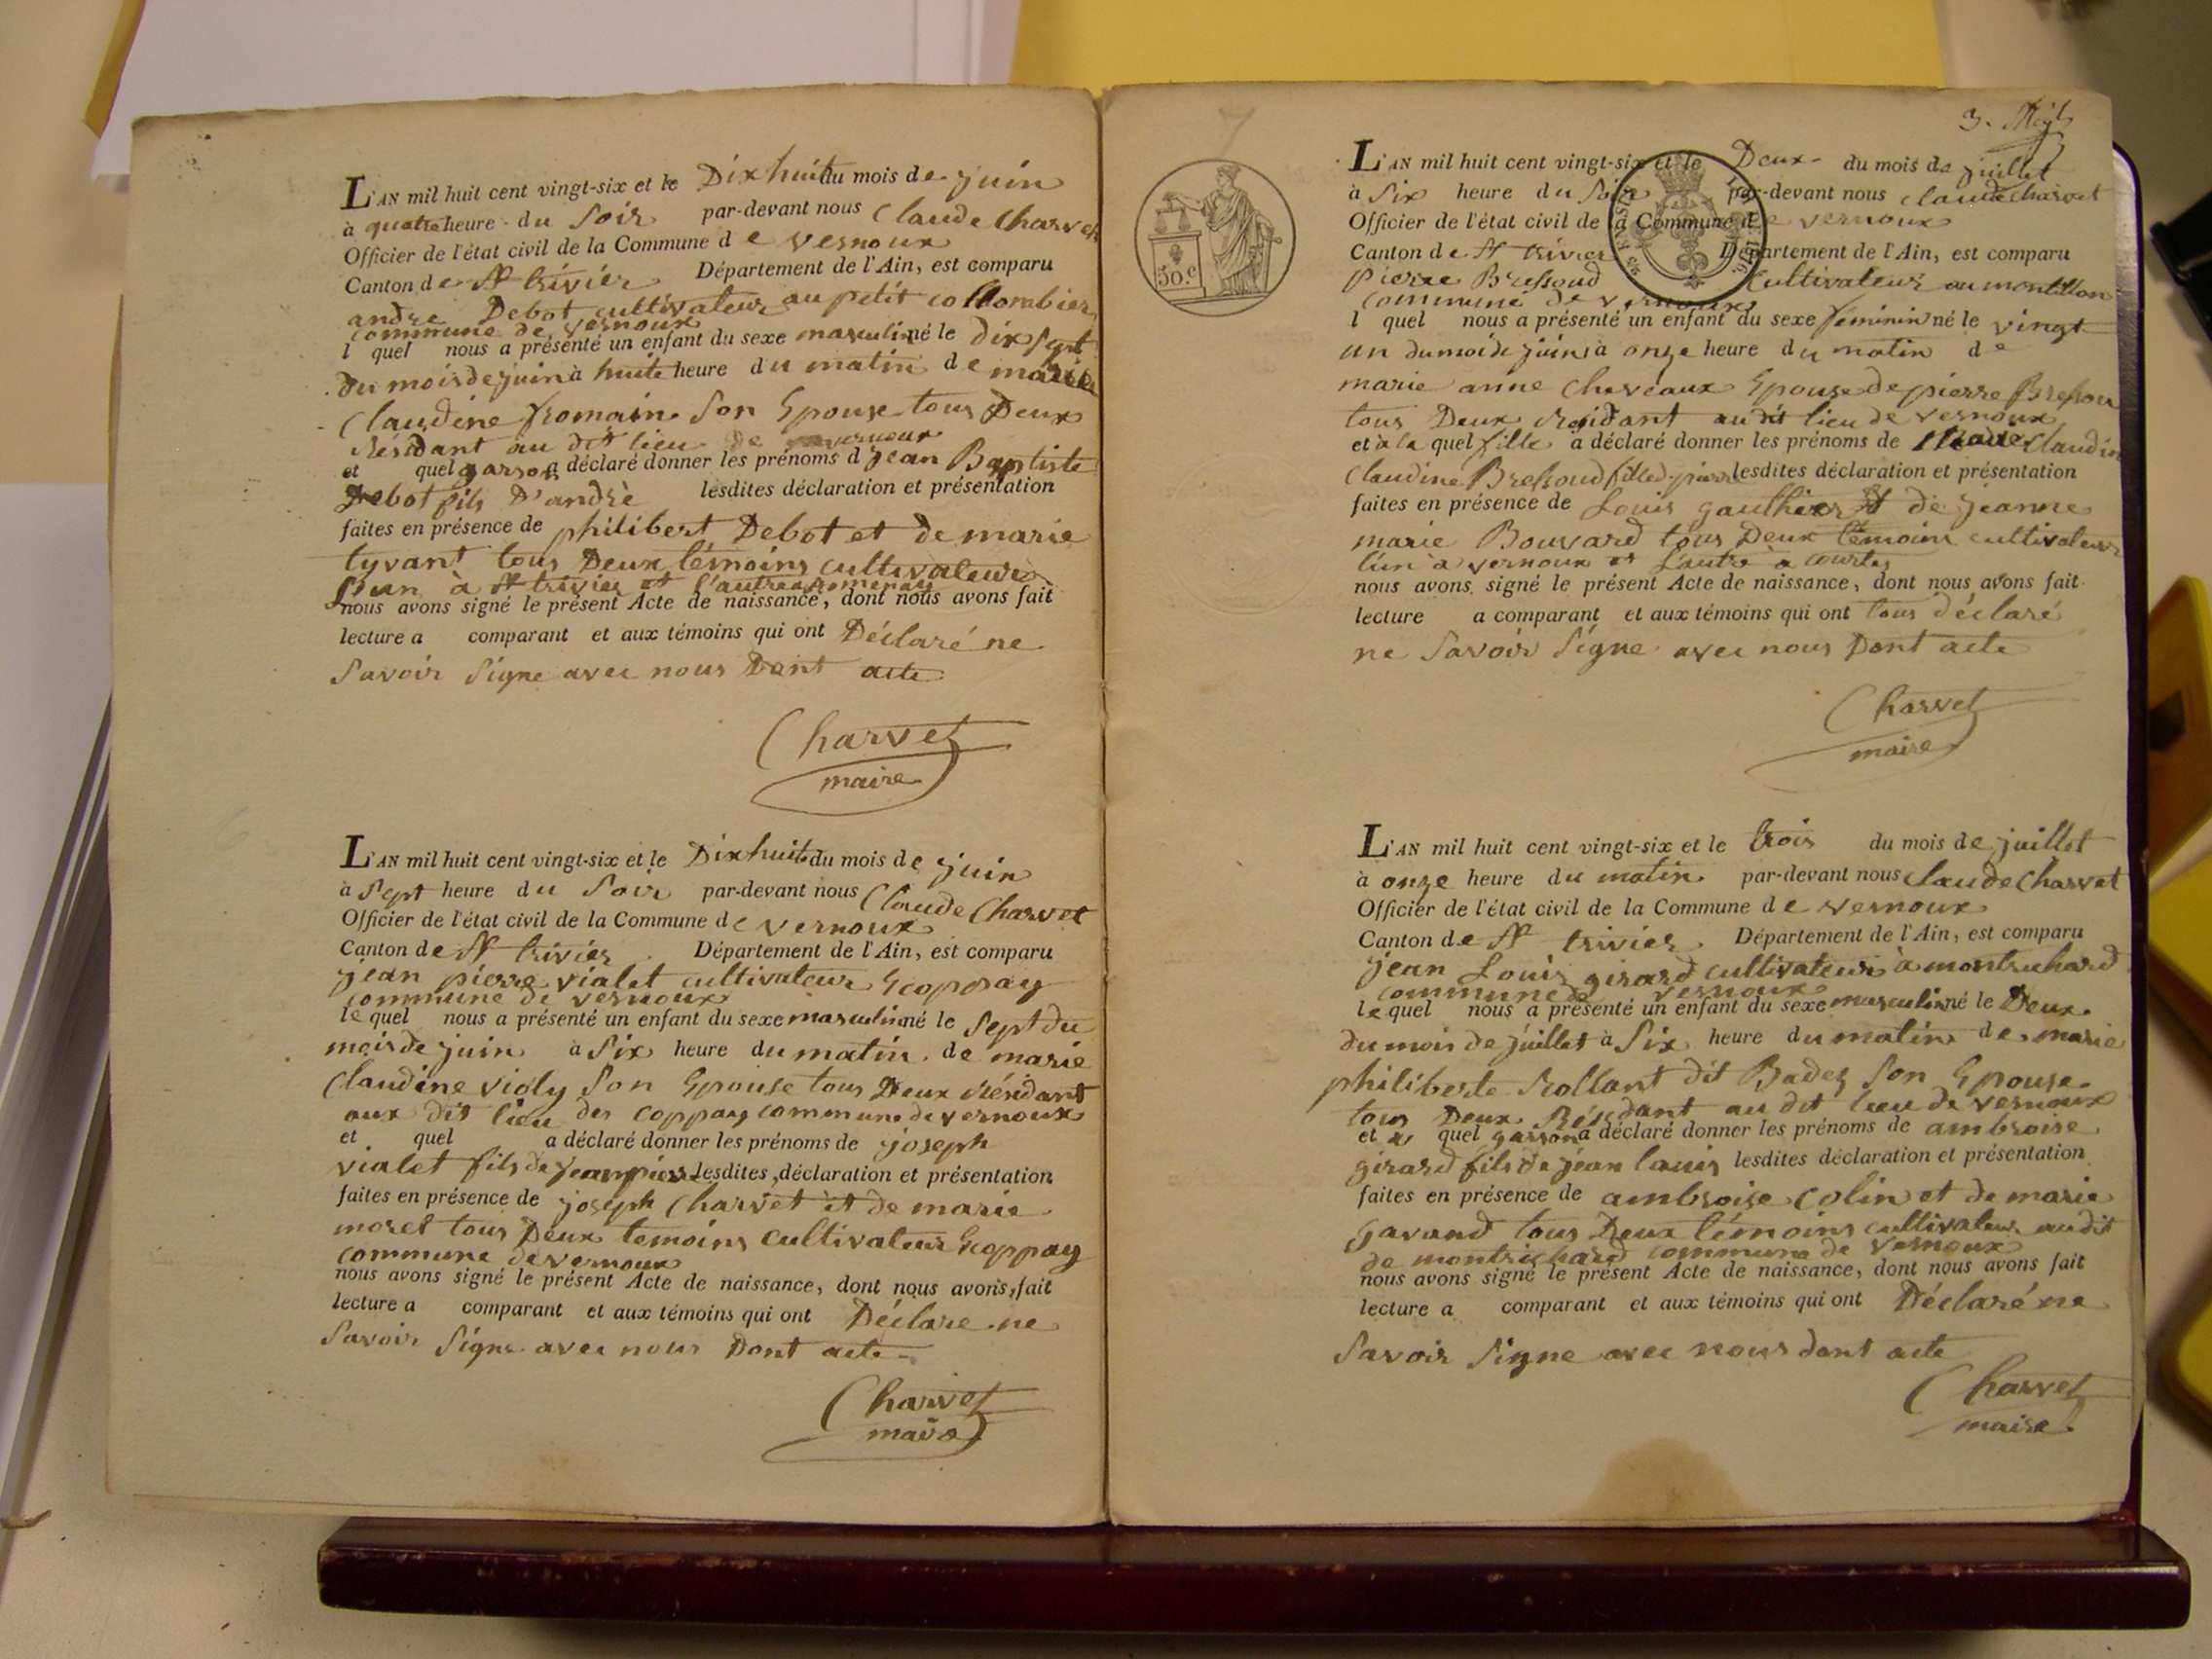 L'AN mil huit cent vingt-six et le Dix huit du mois de juin
à quatre heure du soir par-devant nous Claude Charvet
Officier de l'état civil de la Commune de vernoux
Canton de St trivier Département de l'Ain, est comparu
andre Debot cultivateur au petit collombier
commune de vernoux
l quel nous a présenté un enfant du sexe masculin né le dix sept
du mois de juin à huite heure du matin de marie
Claudine fromain son Epouse tous Deux
Résidant au dit lieu de vernoux
et quel garson a déclaré donner les prénoms d jean Baptiste
Debot fils D'andrè lesdites déclaration et présentation
faites en présence de philibert Debot et de marie
tyvant tous Deux témoins cultivateurs
l'un à St trivier et l'autre a romenay
nous avons signé le présent Acte de naissance, dont nous avons fait
lecture a comparant et aux témoins qui ont Déclaré ne
Savoir Signe avec nous Dont acte
Charvet
maire
L'AN mil huit cent vingt-six et le Dix huit du mois de juin
à Sept heure du Soir par-devant nous Claude Charvet
Officier de l'état civil de la Commune de vernoux
Canton de St trivier Département de l'Ain, est comparu
jean pierre vialet cultivateur Ecoppay
commune de vernoux
le quel nous a présenté un enfant du sexe masculin né le Sept du
mois de juin à Six heure du matin de marie
Claudine violy Son Epouse tous Deux Résidant
aux dit lieu des coppay commune de vernoux
et quel a déclaré donner les prénoms de joseph
vialet fils de jean pierre lesdites déclaration et présentation
faites en présence de joseph Charvet et de marie
morel tous Deux temoins cultivateur Ecoppay
commune de vernoux
nous avons signé le présent Acte de naissance, dont nous avons fait
lecture a comparant et aux témoins qui ont Déclare ne
Savoir Signe avec nous Dont acte
Charvet
maire
7
30.c
L'AN mil huit cent vingt-six et le Deux du mois de juillet
à Six heure du Soir par-devant nous claude Charvet
Officier de l'état civil de la Commune de vernoux
Canton de St trivier Département de l'Ain, est comparu
Pierre Bressoud Cultivateur au montillon
commune de vernoux
l quel nous a présenté un enfant du sexe féminin né le vingt
un du moi de juin à onze heure du matin de
marie anne Cheveaux Epouse de pierre Bressou
tous Deux Residant au dit lieu de vernoux
et à la quel fille a déclaré donner les prénoms de claudin
Claudine Bressoud fille d pierre lesdites déclaration et présentation
faites en présence de Louis gauthier et de jeanne
marie Bouvard tous Deux témoins cultivateurs
l'un à vernoux et L'autre à courtes
nous avons signé le présent Acte de naissance, dont nous avons fait
lecture a comparant et aux témoins qui ont tous déclaré
ne Savoir Signe avec nous Dont acte
Charvet
maire
L'AN mil huit cent vingt-six et le trois du mois de juillet
à onze heure du matin par-devant nous claude Charvet
Officier de l'état civil de la Commune de vernoux
Canton de St trivier Département de l'Ain, est comparu
jean Louis girard cultivateur à montrichard
commune de vernoux
le quel nous a présenté un enfant du sexe masculin né le Deux
du mois de juillet à Six heure du matin de marie
philiberte Rollant dit Badez Son Epouse
tous Deux Résidant au dit lieu de vernoux
et a quel garson a déclaré donner les prénoms de ambroise
girard fils de jean louis lesdites déclaration et présentation
faites en présence de ambroise Colin et de marie
gavand tous Deux témoins cultivateur audit
de montrichard commune de vernoux
nous avons signé le présent Acte de naissance, dont nous avons fait
lecture a comparant et aux témoins qui ont Déclaré ne
Savoir Signe avec nous dont acte
Charvet
maire